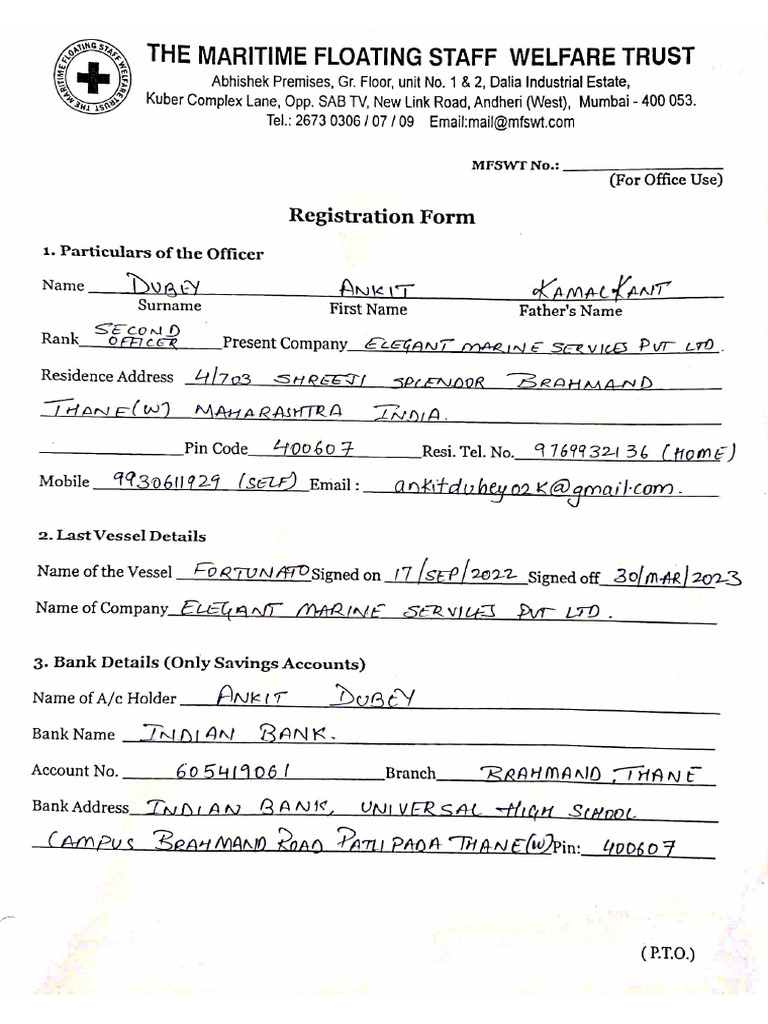 THE MARITIME FLOATING STAFF WELFARE TRUST
THE MARITIME FLOATING STAFF WELFARE TRUST
Abhishek Premises, Gr. Floor, unit No. 1 & 2, Dalia Industrial Estate,
Kuber Complex Lane, Opp. SAB TV, New Link Road, Andheri (West), Mumbai - 400 053.
Tel.: 2673 0306 / 07 / 09 Email:mail@mfswt.com
MFSWT No.:
(For Office Use)
Registration Form
1. Particulars of the Officer
Name DUBEY ANKIT KAMALKANT
Surname First Name Father's Name
Rank SECOND OFFICER Present Company ELEGANT MARINE SERVICES PVT LTD.
Residence Address 4/703 SHREEJI SPLENDOR BRAHMAND
THANE(W) MAHARASHTRA INDIA.
Pin Code 400607 Resi. Tel. No. 9769932136 (HOME)
Mobile 9930611929 (SELF) Email : ankitdubey02k@gmail.com.
2. Last Vessel Details
Name of the Vessel FORTUNATO Signed on 17/SEP/2022 Signed off 30/MAR/2023
Name of Company ELEGANT MARINE SERVICES PVT LTD.
3. Bank Details (Only Savings Accounts)
Name of A/c Holder ANKIT DUBEY
Bank Name INDIAN BANK.
Account No. 605419061 Branch BRAHMAND, THANE
Bank Address INDIAN BANK, UNIVERSAL HIGH SCHOOL
CAMPUS BRAHMAND ROAD PATLIPADA THANE(W) Pin: 400607
(P.T.O.)